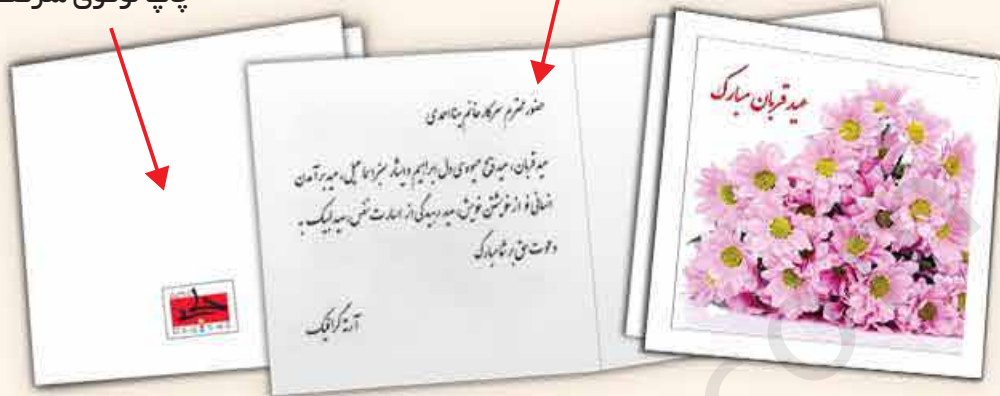 چاپ لوگوی شرکت
عید قربان مبارک
حضور محترم سرکار خانم بینا احمدی
عید قربان، عید ذبح میوه‌ی دل ابراهیم و ایثار سبز اسماعیل، عید برآمدن
انسانی نو از خویشتن خویش، عید رهیدگی از اسارت نفس، عید لبیک به
دعوت حق بر شما مبارک
آرته گرافیک